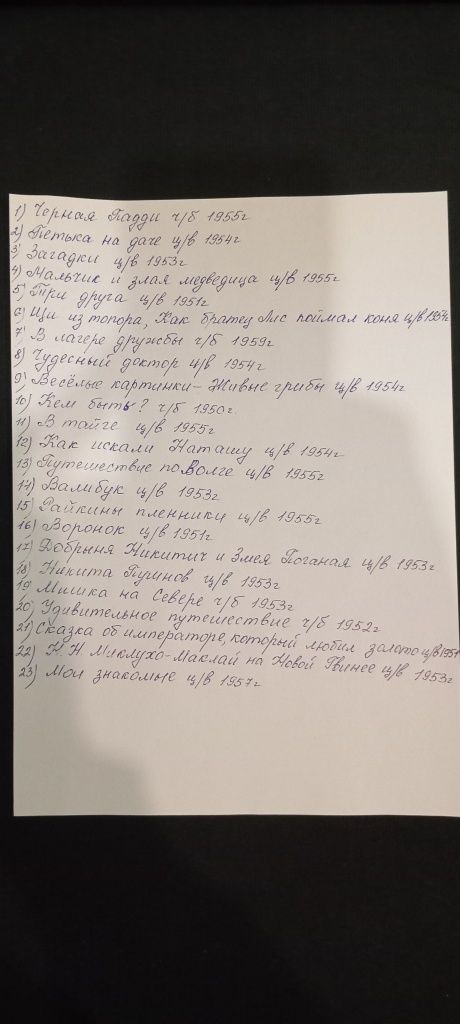 1) Черная Падди ч/б 1955г
2) Петька на даче ц/в 1954г
3) Загадки ц/в 1953г
4) Мальчик и злая медведица ц/в 1955г
5) Три друга ц/в 1951г
6) Щи из топора, Как братец Лис поймал коня ц/в 1954г
7) В лагере дружбы ч/б 1959г
8) Чудесный доктор ц/в 1954г
9) Весёлые картинки - Живые грибы ц/в 1954г
10) Кем быть? ч/б 1950г.
11) В тайге ц/в 1955г
12) Как искали Наташу ц/в 1954г
13) Путешествие по Волге ц/в 1955г
14) Валибук ц/в 1953г
15) Райкины пленники ц/в 1955г
16) Воронок ц/в 1951г
17) Добрыня Никитич и Змея Поганая ц/в 1953г
18) Никита ц/в 1953г
19) Мишка на Севере ч/б 1953г
20) Удивительное путешествие ч/б 1952г
21) Сказка об императоре, который любил золото ц/в
22) Н.Н Миклухо-Маклай на Новой Гвинее ц/в 1953г
23) Мои знакомые ц/в 1957г